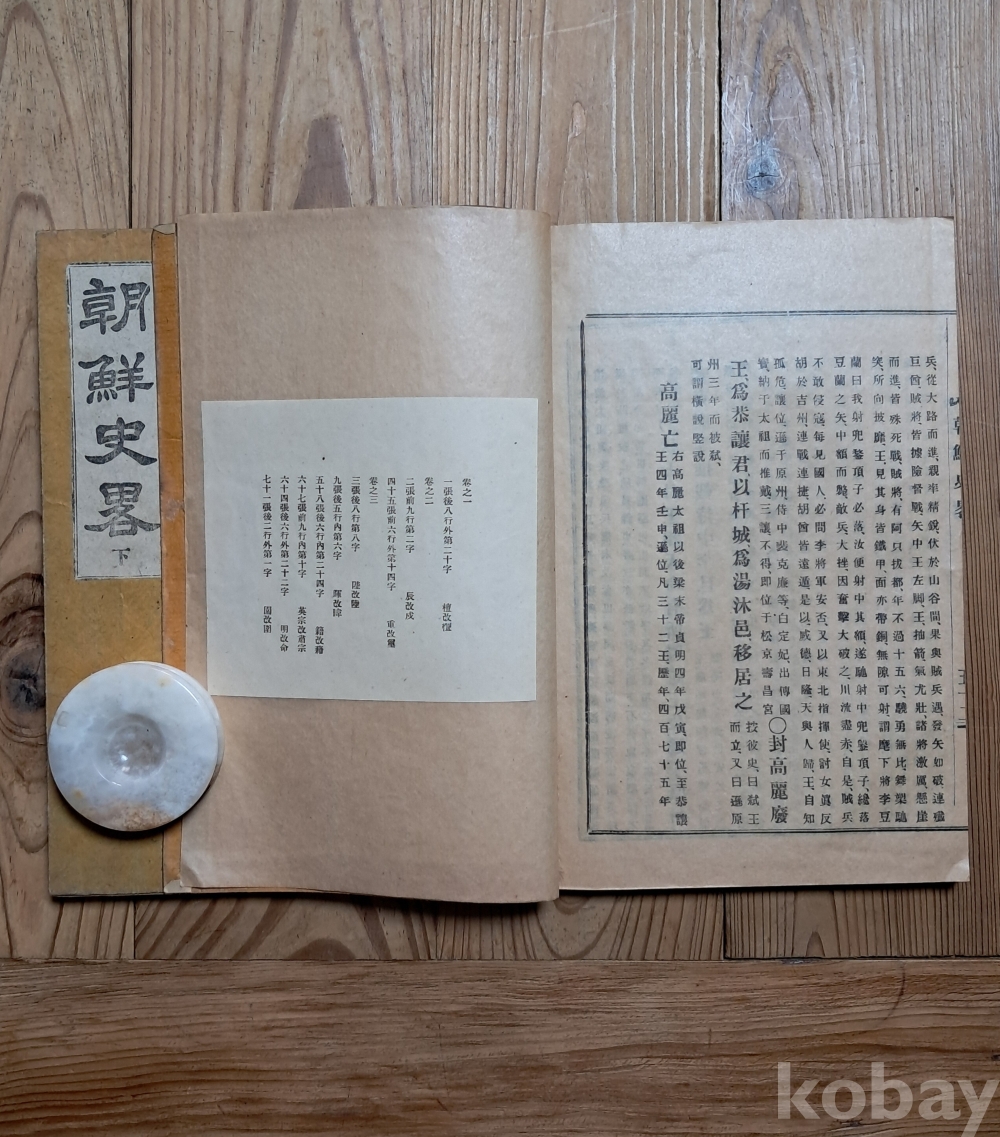 兵、從大路而進、親率精銳伏於山谷間、果與賊兵遇、發矢如破、連殪
巨酋、賊將、皆據險督戰、矢中王左脚、王、抽箭、氣尤壯、諸將激厲、懸崖
而進、皆殊死戰、賊將有阿只拔都、年不過十五六、驍勇無比、舞槊馳
突、所向披靡、王、見其身皆鐵甲、面亦帶銅、無隙可射、謂麾下將李豆
蘭曰、我射兜鍪頂子、必落、汝便射中其額、遂馳射中兜鍪頂子、纔落
豆蘭之矢、中額而斃、敵兵、大挫、因奮擊大破之、川流盡赤、自是、賊兵
不敢侵寇、每見國人、必問李將軍安否、又以東北指揮使、討女眞反
胡於吉州、連戰連捷、胡酋皆遠遁、是以、威德、日隆、天與人歸、王、自知
孤危、讓位、遜于原州、侍中裴克廉等、白定妃、出傳國
寶、納于太祖而推戴、三讓不得、即位于松京壽昌宮
〇封高麗廢
王、爲恭讓君、以杆城、爲湯沐邑、移居之
按彼史、曰弑王
而立、又曰遜原
州三年而被弑、
可謂橫說竪說
高麗亡
右高麗太祖以後梁末帝貞明四年戊寅、即位、至恭讓
王四年壬申、遜位、凡三十二王、歷年、四百七十五年
卷之一
一張後八行外第二十字 檀改𣞀
卷之二
二張前九行第二字 辰改戍
四十五張前六行外第十四字 重改璽
卷之三
三張後八行第八字 陞改陸
九張後五行內第六字 暉改暐
五十八張後六行內第二十四字 籍改藉
六十七張前九行內第十字 英宗改肅宗
六十四張後六行外第二十二字 明改命
七十一張後二行外第一字 園改圍
朝鮮史畧 下
kobay